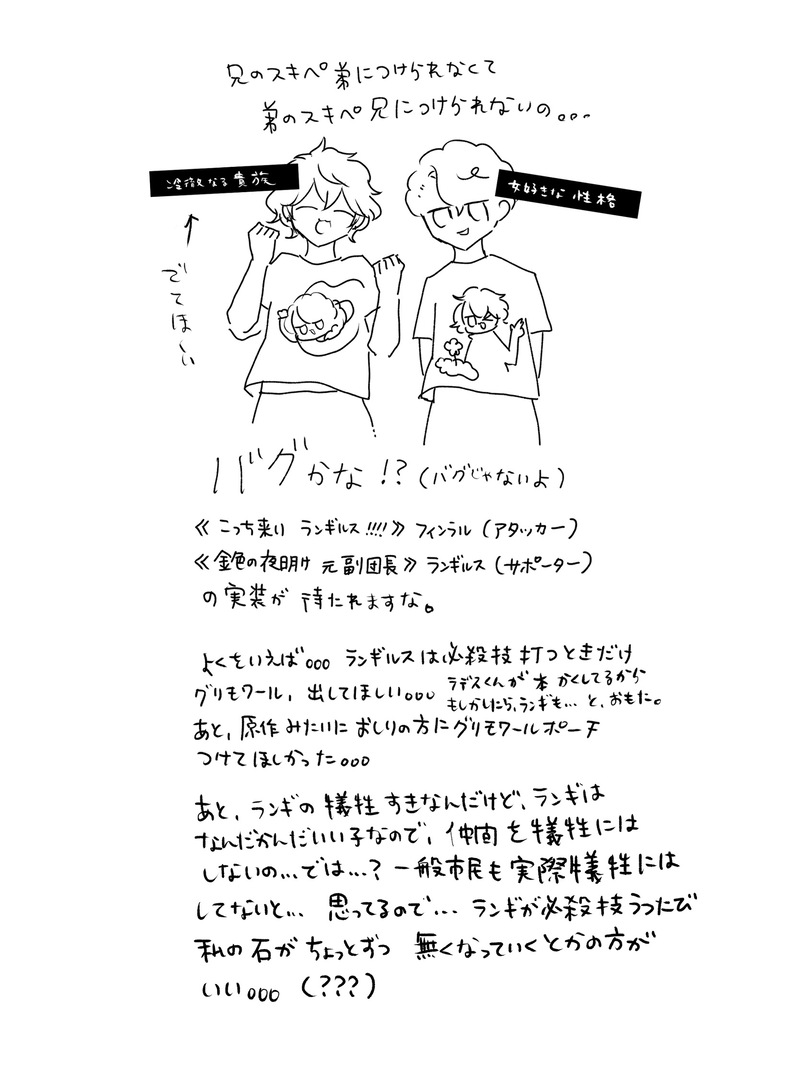 兄のスキペ弟につけられなくて
弟のスキペ兄につけられないの。。。
冷徹なる貴族
女好きな性格
↑
でてほしい
バグかな!?(バグじゃないよ)
《こっち来い ランギルス!!!!》フィンラル(アタッカー)
《金色の夜明け 元副団長》ランギルス(サポーター)
の実装が待たれますな。
よくをいえば。。。ランギルスは必殺技打つときだけ
グリモワール、出してほしい。。。
ラデスくんが本かくしてるから
もしかしたら、ランギも...と、おもた。
あと、原作みたいにおしりの方にグリモワールポーチ
つけてほしかった。。。
あと、ランギの犠牲すきなんだけど、ランギは
なんだかんだいい子なので、仲間を犠牲には
しないの...では...?一般市民も実際犠牲には
してないと... 思ってるので...ランギが必殺技うつたび
私の石がちょっとずつ 無くなっていくとかの方が
いい。。。(???)